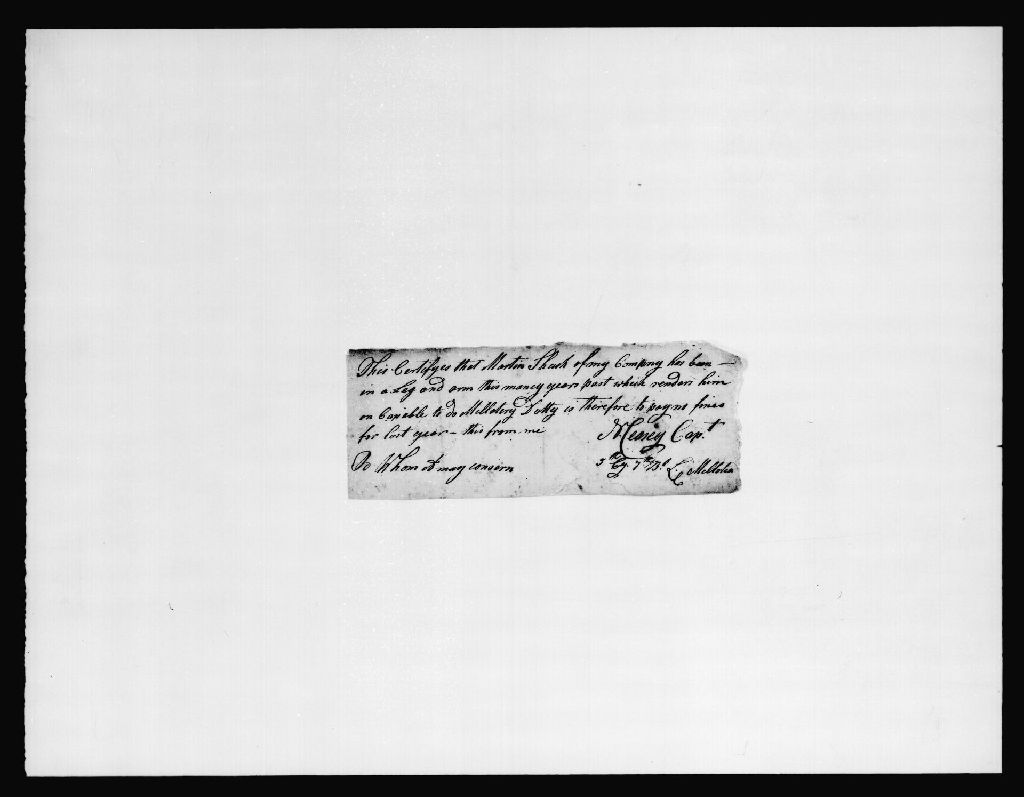 This Certifyes that Martin Shuck of my Company has been
in a Leg and arm this maney years past which renders him
on Capieble to do Melletery Detty is therefore to pay no fines
for last year - this from me
Henrey Capt
To Whom it may consern
3th Cy. 7th Bt L Melletia